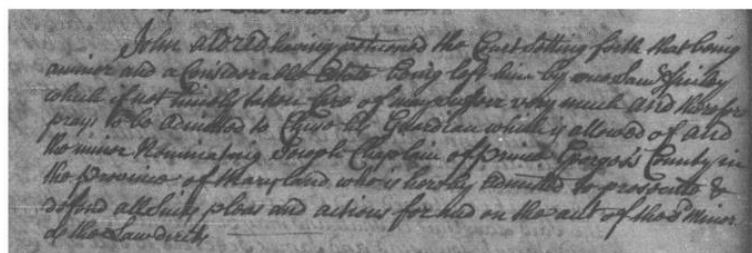 John aldred having peticoned the Court Setting forth that being
a minor and a Considerable Estate being left him by one Saml Spicley
which if not timely taken Care of may suffer very much and therefore
prays to be admitted to Chuse his Guardian which is allowed of and
the minor Nominating Joseph Chaplain of Prince George's County in
the province of Maryland who is hereby admitted to prosecute &
defend all Suits pleas and actions for and on the act of the sd Minor
as the Law directs